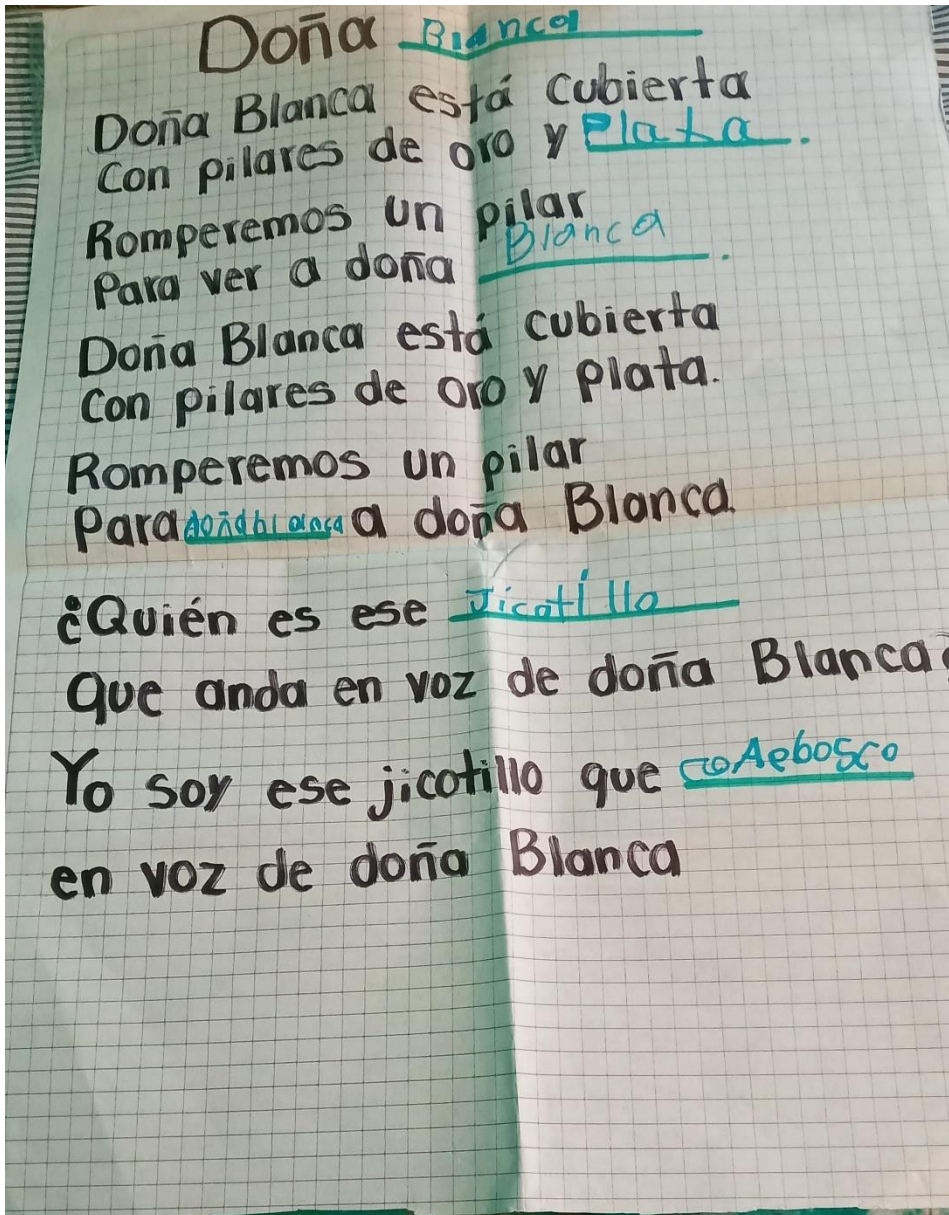 Doña Blanca
Doña Blanca está cubierta
Con pilares de oro y Plata.
Romperemos un pilar
Para ver a doña Blanca.
Doña Blanca está cubierta
Con pilares de oro y plata.
Romperemos un pilar
Para doñablanca a doña Blanca.
¿Quién es ese Jicotillo
que anda en voz de doña Blanca?
Yo soy ese jicotillo que
en voz de doña Blanca